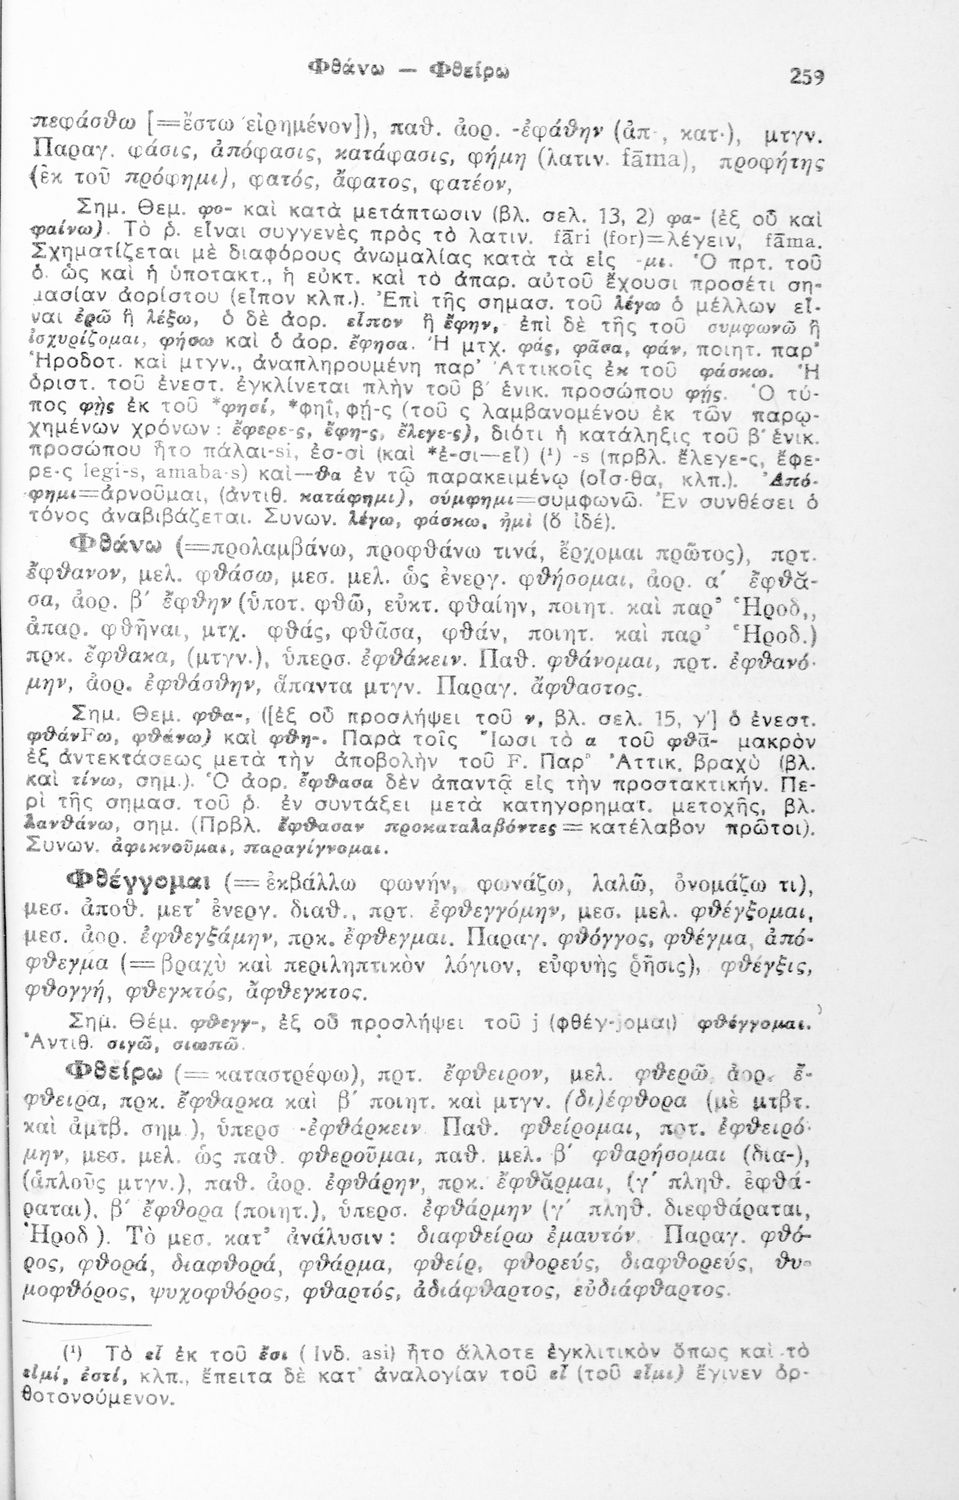 Φθάνω — Φθείρω 259
πεφάσθω [=ἔστω εἰρημένον]), παθ. ἀορ. -ἐφάθην (ἀπ-, κατ-), μτγν.
Παραγ. φάσις, ἀπόφασις, κατάφασις, φήμη (λατιν. fāma), προφήτης
(ἐκ τοῦ πρόφημι), φατός, ἄφατος, φατέον,
Σημ. Θεμ. φσ- καὶ κατὰ μετάπτωσιν (βλ. σελ. 13, 2) φα- (ἐξ οὗ καὶ
φαίνω). Τὸ ῥ. εἶναι συγγενὲς πρὸς τὸ λατιν. fāri (for)=λέγειν, fāma.
Σχηματίζεται μὲ διαφόρους ἀνωμαλίας κατὰ τὰ εἰς -μι. Ὁ πρτ. τοῦ
ὁ. ὡς καὶ ἡ ὑποτακτ., ἡ εὐκτ. καὶ τὸ ἀπαρ. αὐτοῦ ἔχουσι προσέτι ση-
μασίαν ἀορίστου (εἶπον κλπ.). Ἐπὶ τῆς σημασ. τοῦ λέγω ὁ μέλλων εἶ-
ναι ἐρῶ ἢ λέξω, ὁ δὲ ἀορ. εἶπον ἢ ἔφην, ἐπὶ δὲ τῆς τοῦ συμφωνῶ ἢ
ἰσχυρίζομαι, φήσω καὶ ὁ ἀορ. ἔφησα. Ἡ μτχ. φάς, φᾶσα, φάν, ποιητ. παρ'
Ἡροδοτ. καὶ μτγν., ἀναπληρουμένη παρ' Ἀττικοῖς ἐκ τοῦ φάσκω. Ἡ
ὁριστ. τοῦ ἐνεστ. ἐγκλίνεται πλὴν τοῦ β' ἑνικ. προσώπου φῄς. Ὁ τύ-
πος φῂς ἐκ τοῦ *φησί, *φηΐ, φῄ-ς (τοῦ ς λαμβανομένου ἐκ τῶν παρῳ-
χημένων χρόνων: ἔφερε-ς, ἔφη-ς, ἔλεγε-ς), διότι ἡ κατάληξις τοῦ β' ἑνικ.
προσώπου ἦτο πάλαι-si, ἐσ-σὶ (καὶ *ἐ-σι—εἶ) (¹) -s (πρβλ. ἔλεγε-ς, ἔφε-
ρε-ς legi-s, amaba-s) καὶ—θα ἐν τῷ παρακειμένῳ (οἶσ-θα, κλπ.). Ἀπό-
φημι=ἀρνοῦμαι, (ἀντιθ. κατάφημι), σύμφημι=συμφωνῶ. Ἐν συνθέσει ὁ
τόνος ἀναβιβάζεται. Συνων. λέγω, φάσκω, ἠμὶ (ὃ ἰδέ).
Φθάνω (=προλαμβάνω, προφθάνω τινά, ἔρχομαι πρῶτος), πρτ.
ἔφθανον, μελ. φθάσω, μεσ. μελ. ὡς ἐνεργ. φθήσομαι, ἀορ. α' ἔφθᾰ-
σα, ἀορ. β' ἔφθην (ὑποτ. φθῶ, εὐκτ. φθαίην, ποιητ. καὶ παρ' Ἡροδ.,
ἀπαρ. φθῆναι, μτχ. φθάς, φθᾶσα, φθάν, ποιητ. καὶ παρ' Ἡροδ.)
πρκ. ἔφθακα, (μτγν.), ὑπερσ. ἐφθάκειν. Παθ. φθάνομαι, πρτ. ἐφθανό-
μην, ἀορ. ἐφθάσθην, ἅπαντα μτγν. Παραγ. ἄφθαστος.
Σημ. Θεμ. φθα-, ([ἐξ οὗ προσλήψει τοῦ ν, βλ. σελ. 15, γ'] ὁ ἐνεστ.
φθάνFω, φθάνω) καὶ φθη-. Παρὰ τοῖς Ἴωσι τὸ α τοῦ φθᾱ- μακρὸν
ἐξ ἀντεκτάσεως μετὰ τὴν ἀποβολὴν τοῦ F. Παρ' Ἀττικ. βραχὺ (βλ.
καὶ τίνω, σημ.). Ὁ ἀορ. ἔφθασα δὲν ἀπαντᾷ εἰς τὴν προστακτικήν. Πε-
ρὶ τῆς σημασ. τοῦ ῥ. ἐν συντάξει μετὰ κατηγορηματ. μετοχῆς, βλ.
λανθάνω, σημ. (Πρβλ. ἔφθασαν προκαταλαβόντες = κατέλαβον πρῶτοι).
Συνων. ἀφικνοῦμαι, παραγίγνομαι.
Φθέγγομαι (= ἐκβάλλω φωνήν, φωνάζω, λαλῶ, ὀνομάζω τι),
μεσ. ἀποθ. μετ' ἐνεργ. διαθ., πρτ. ἐφθεγγόμην, μεσ. μελ. φθέγξομαι,
μεσ. ἀορ. ἐφθεγξάμην, πρκ. ἔφθεγμαι. Παραγ. φθόγγος, φθέγμα, ἀπό-
φθεγμα (= βραχὺ καὶ περιληπτικὸν λόγιον, εὐφυὴς ῥῆσις), φθέγξις,
φθογγή, φθεγκτός, ἄφθεγκτος.
Σημ. Θέμ. φθεγγ-, ἐξ οὗ προσλήψει τοῦ j (φθέγ-jομαι) φθέγγομαι.
Ἀντιθ. σιγῶ, σιωπῶ.
Φθείρω (= καταστρέφω), πρτ. ἔφθειρον, μελ. φθερῶ, ἀορ. ἔ-
φθειρα, πρκ. ἔφθαρκα καὶ β' ποιητ. καὶ μτγν. (δι)έφθορα (μὲ μτβτ.
καὶ ἀμτβ. σημ.), ὑπερσ -ἐφθάρκειν Παθ. φθείρομαι, πρτ. ἐφθειρό-
μην, μεσ. μελ. ὡς παθ. φθεροῦμαι, παθ. μελ. β' φθαρήσομαι (δια-),
(ἁπλοῦς μτγν.), παθ. ἀορ. ἐφθάρην, πρκ. ἔφθαρμαι, (γ' πληθ. ἐφθά-
ραται), β' ἔφθορα (ποιητ.), ὑπερσ. ἐφθάρμην (γ' πληθ. διεφθάραται,
Ἡροδ). Τὸ μεσ. κατ' ἀνάλυσιν: διαφθείρω ἐμαυτόν. Παραγ. φθό-
ρος, φθορά, διαφθορά, φθάρμα, φθείρ, φθορεύς, διαφθορεύς, θυ-
μοφθόρος, ψυχοφθόρος, φθαρτός, ἀδιάφθαρτος, εὐδιάφθαρτος.
(¹) Τὸ εἶ ἐκ τοῦ ἔσι (Ἰνδ. asi) ἦτο ἄλλοτε ἐγκλιτικὸν ὅπως καὶ τὸ
εἰμί, ἐστί, κλπ., ἔπειτα δὲ κατ' ἀναλογίαν τοῦ εἶ (τοῦ εἶμι) ἔγινεν ὀρ-
θοτονούμενον.